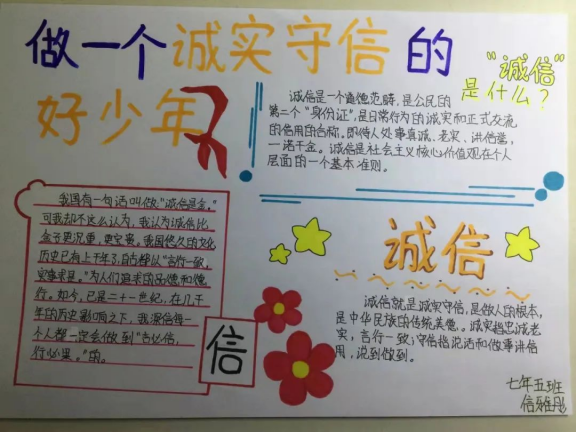 做一个诚实守信的
好少年
"诚信"
是什么?
诚信是一个道德范畴,是公民的
第二个"身份证",是日常行为的诚实和正式交流
的信用的合称。即待人处事真诚、老实、讲信誉,
一诺千金。诚信是社会主义核心价值观在个人
层面的一个基本准则。
我国有一句话叫做:"诚信是金。"
可我却不这么认为,我认为诚信比
金子更沉重,更宝贵。我国悠久的文化
历史已有上千年了,自古都以"言行一致,
实事求是。"为人们追求的品德和德
行。如今,已是二十一世纪,在几千
年的历史影响之下,我深信每一
个人都一定会做到"言必信,
行必果。"的。
信
诚信
诚信就是诚实守信,是做人的根本,
是中华民族的传统美德。诚实指忠诚老
实,言行一致;守信指说话和做事讲信
用,说到做到。
七年五班
信雅彤